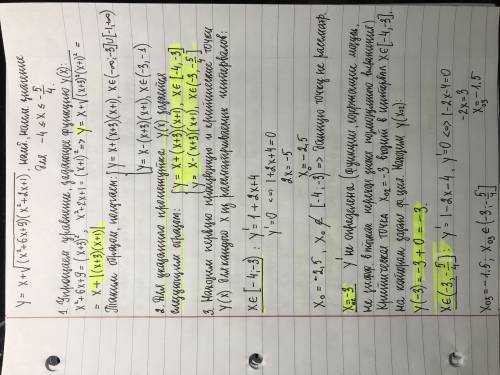 y = x + √(x²+6x+9)(x²+2x+1) наиб, наим значение
для -4 ≤ x ≤ -5/4.
1. Упрощаем уравнение, задающее функцию y(x):
x²+6x+9 = (x+3)² x²+2x+1 = (x+1)² => y = x + √(x+3)²(x+1)² =
= x + |(x+3)(x+1)|
Таким образом получаем: [ y = x + (x+3)(x+1), x ∈ (-∞; -3] ∪ [-1, +∞)
y = x - (x+3)(x+1), x ∈ (-3, -1)
2. Для указанного промежутка y(x) задаётся
следующим образом: [ y = x + (x+3)(x+1), x ∈ [-4, -3]
y = x - (x+3)(x+1), x ∈ (-3, -5/4]
3. Находим первую производную и критические точки
y(x) для каждого из рассматриваемых интервалов:
x ∈ [-4; -3) : y' = 1 + 2x + 4
y' = 0 <=> 1 + 2x + 4 = 0
2x = -5
x = -2,5
x₀ = -2,5, x₀ ∉ [-4, -3) => данную точку не рассматр.
x₀₂ = -3 y' не определена (функции, содержащие модули,
не дифф. в точках перехода знака подмодульного выражения)
Критическая точка x₀₂ = -3 входит в интервал x ∈ [-4, -3],
на котором задана ф-ция. Находим y(x₀₂):
y(-3) = -3 + 0 = -3.
x ∈ (-3, -5/4] : y' = 1 - 2x - 4, y' = 0 <=> 1 - 2x - 4 = 0
-2x = 3
x₀₃ = -1,5
x₀₃ = -1.5, x₀₃ ∈ (-3; -5/4]